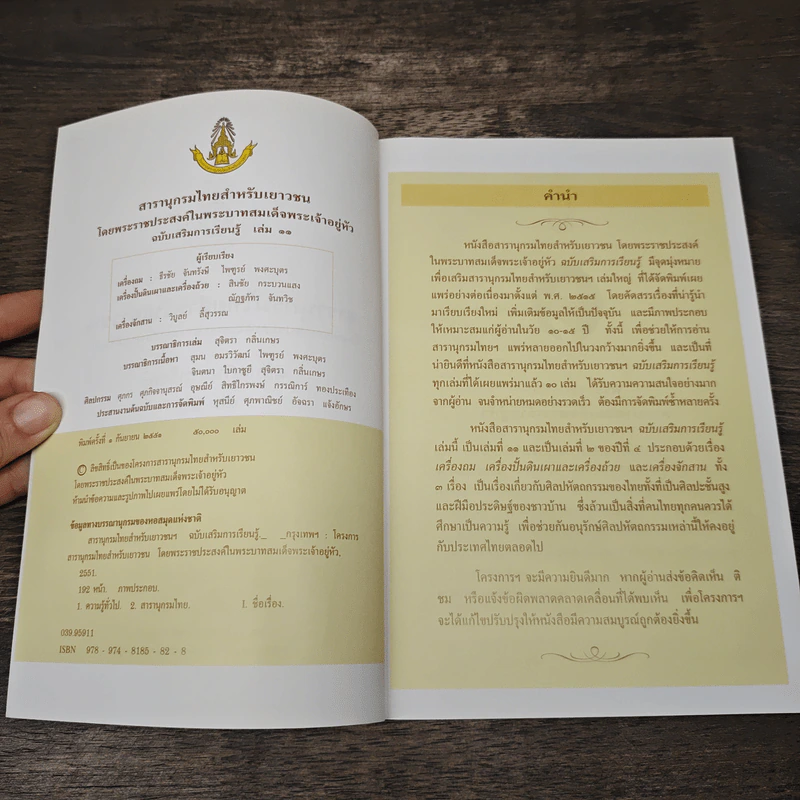 สารานุกรมไทยสำหรับเยาวชน
โดยพระราชประสงค์ในพระบาทสมเด็จพระเจ้าอยู่หัว
ฉบับเสริมการเรียนรู้ เล่ม ๑๑
ผู้เรียบเรียง
เครื่องถม : ธีรชัย จันทรังษี ไพฑูรย์ พงศะบุตร
เครื่องปั้นดินเผาและเครื่องถ้วย : สินชัย กระบวนแสง
ณัฏฐภัทร จันทวิช
เครื่องจักสาน : วิบูลย์ ลี้สุวรรณ
บรรณาธิการเล่ม สุจิตรา กลิ่นเกษร
บรรณาธิการเนื้อหา สุมน อมรวิวัฒน์ ไพฑูรย์ พงศะบุตร
จินตนา ใบกาซูยี สุจิตรา กลิ่นเกษร
ศิลปกรรม ศุภกร ศุภกิจจานุสรณ์ อุษณีย์ สิทธิไกรพงษ์ กรรณิการ์ ทองประเทือง
ประสานงานต้นฉบับและการจัดพิมพ์ หุสนีย์ ศุภพาณิชย์ อัจฉรา แจ้งอักษร
พิมพ์ครั้งที่ ๑ กันยายน ๒๕๕๑ ๕๐,๐๐๐ เล่ม
© ลิขสิทธิ์เป็นของโครงการสารานุกรมไทยสำหรับเยาวชน
โดยพระราชประสงค์ในพระบาทสมเด็จพระเจ้าอยู่หัว
ห้ามนำข้อความและรูปภาพไปเผยแพร่โดยไม่ได้รับอนุญาต
ข้อมูลทางบรรณานุกรมของหอสมุดแห่งชาติ
สารานุกรมไทยสำหรับเยาวชนฯ ฉบับเสริมการเรียนรู้._ _กรุงเทพฯ : โครงการ
สารานุกรมไทยสำหรับเยาวชน โดยพระราชประสงค์ในพระบาทสมเด็จพระเจ้าอยู่หัว,
2551.
192 หน้า. ภาพประกอบ.
1. ความรู้ทั่วไป. 2. สารานุกรมไทย. I. ชื่อเรื่อง.
039.95911
ISBN 978 - 974 - 8185 - 82 - 8
คำนำ
หนังสือสารานุกรมไทยสำหรับเยาวชน โดยพระราชประสงค์
ในพระบาทสมเด็จพระเจ้าอยู่หัว ฉบับเสริมการเรียนรู้ มีจุดมุ่งหมาย
เพื่อเสริมสารานุกรมไทยสำหรับเยาวชนฯ เล่มใหญ่ ที่ได้จัดพิมพ์เผย
แพร่อย่างต่อเนื่องมาตั้งแต่ พ.ศ. ๒๕๑๕ โดยคัดสรรเรื่องที่น่ารู้นำ
มาเรียบเรียงใหม่ เพิ่มเติมข้อมูลให้เป็นปัจจุบัน และมีภาพประกอบ
ให้เหมาะสมแก่ผู้อ่านในวัย ๑๐-๑๕ ปี ทั้งนี้ เพื่อช่วยให้การอ่าน
สารานุกรมไทยฯ แพร่หลายออกไปในวงกว้างมากยิ่งขึ้น และเป็นที่
น่ายินดีที่หนังสือสารานุกรมไทยสำหรับเยาวชนฯ ฉบับเสริมการเรียนรู้
ทุกเล่มที่ได้เผยแพร่มาแล้ว ๑๐ เล่ม ได้รับความความสนใจอย่างมาก
จากผู้อ่าน จนจำหน่ายหมดอย่างรวดเร็ว ต้องมีการจัดพิมพ์ซ้ำหลายครั้ง
หนังสือสารานุกรมไทยสำหรับเยาวชนฯ ฉบับเสริมการเรียนรู้
เล่มนี้ เป็นเล่มที่ ๑๑ และเป็นเล่มที่ ๒ ของปีที่ ๔ ประกอบด้วยเรื่อง
เครื่องถม เครื่องปั้นดินเผาและเครื่องถ้วย และเครื่องจักสาน ทั้ง
๓ เรื่อง เป็นเรื่องเกี่ยวกับศิลปหัตถกรรมของไทยทั้งที่เป็นศิลปะชั้นสูง
และฝีมือประดิษฐ์ของชาวบ้าน ซึ่งล้วนเป็นสิ่งที่คนไทยทุกคนควรได้
ศึกษาเป็นความรู้ เพื่อช่วยกันอนุรักษ์ศิลปหัตถกรรมเหล่านี้ให้คงอยู่
กับประเทศไทยตลอดไป
โครงการฯ จะมีความยินดีมาก หากผู้อ่านส่งข้อคิดเห็น ติ
ชม หรือแจ้งข้อผิดพลาดคลาดเคลื่อนที่ได้พบเห็น เพื่อโครงการฯ
จะได้แก้ไขปรับปรุงให้หนังสือมีความสมบูรณ์ถูกต้องยิ่งขึ้น